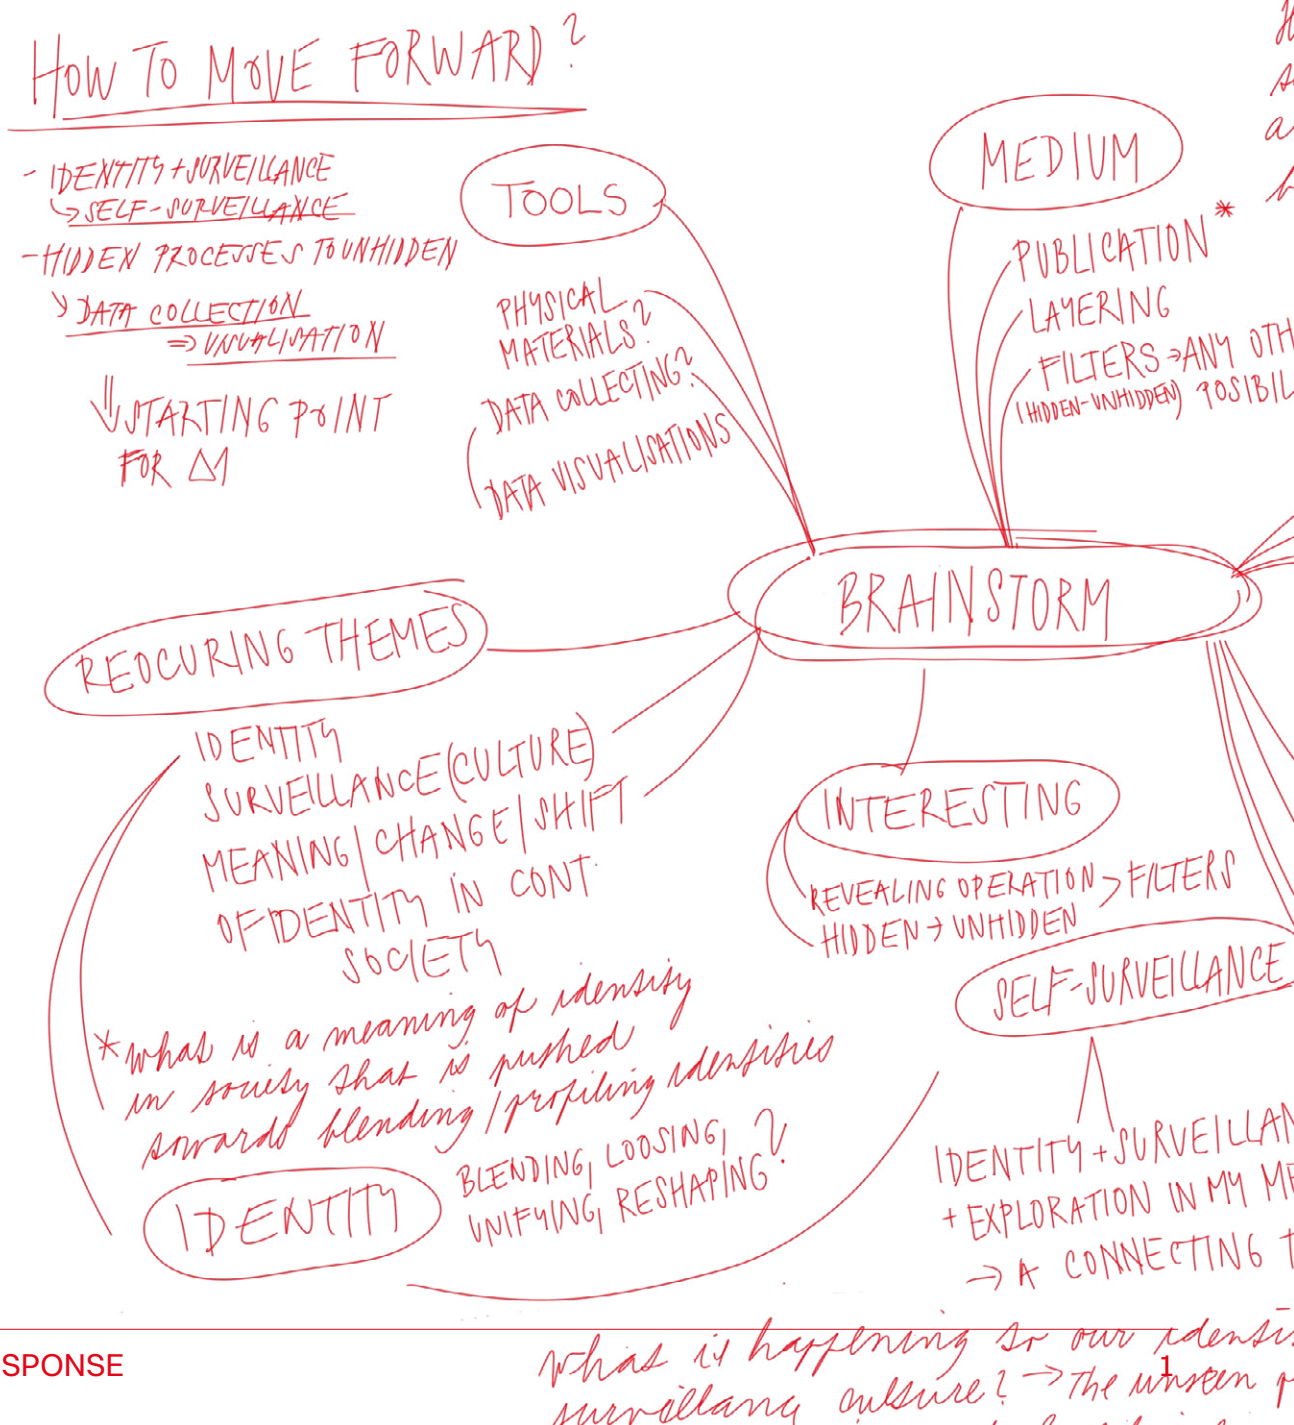 HOW TO MOVE FORWARD?
- IDENTITY + SURVEILLANCE
↳ SELF-SURVEILLANCE
- HIDDEN PROCESSES TO UNHIDDEN
↘ DATA COLLECTION
⇒ VISUALISATION
⇓ STARTING POINT
FOR Δ1
TOOLS
PHYSICAL
MATERIALS?
DATA COLLECTING?
DATA VISUALISATIONS
MEDIUM
PUBLICATION*
LAYERING
FILTERS → ANY OTH
(HIDDEN-UNHIDDEN) POSIBIL
BRAINSTORM
REOCURING THEMES
IDENTITY
SURVEILLANCE (CULTURE)
MEANING / CHANGE / SHIFT
OF IDENTITY IN CONT.
SOCIETY
* what is a meaning of identity
in society that is pushed
towards blending / profiling identities
IDENTITY
BLENDING, LOOSING,
UNIFYING, RESHAPING?
INTERESTING
REVEALING OPERATION > FILTERS
HIDDEN → UNHIDDEN
SELF-SURVEILLANCE
IDENTITY + SURVEILLAN
+ EXPLORATION IN MY ME
→ A CONNECTING T
what is happening to our identi
surveillanc culture? → The unseen p
SPONSE
1